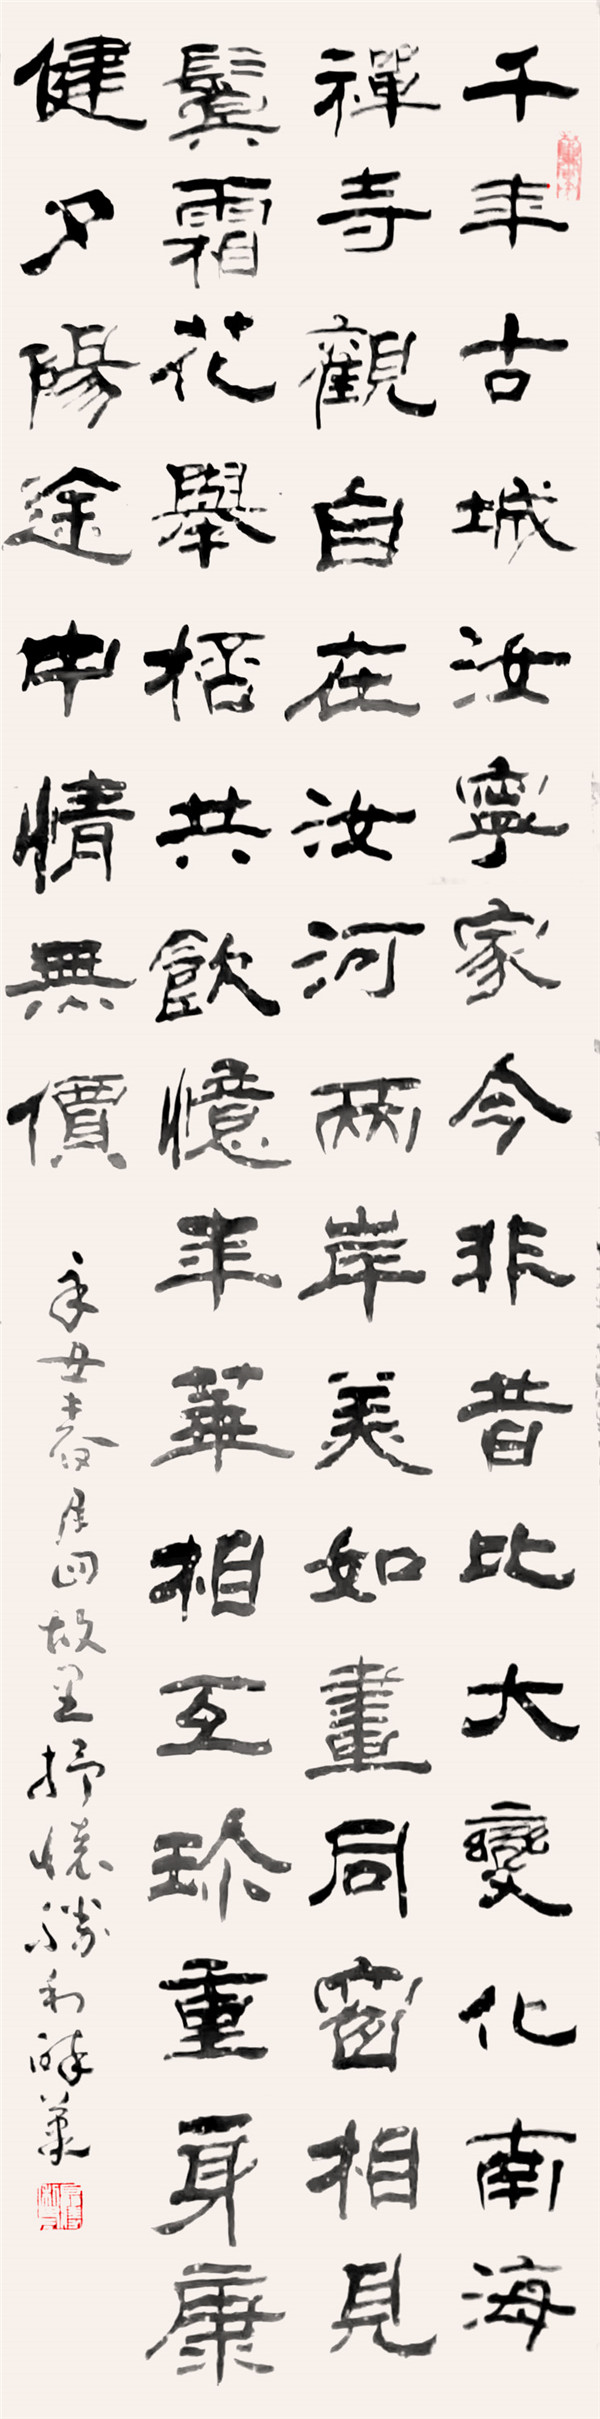 千年古城汝寧家今非昔比大變化南海
禪寺觀自在汝河两岸美如畫同窗相見
鬢霜花舉桮共飲憶年華相互珍重身康
健夕陽途中情無價
辛丑春居四故里抒懷勝利